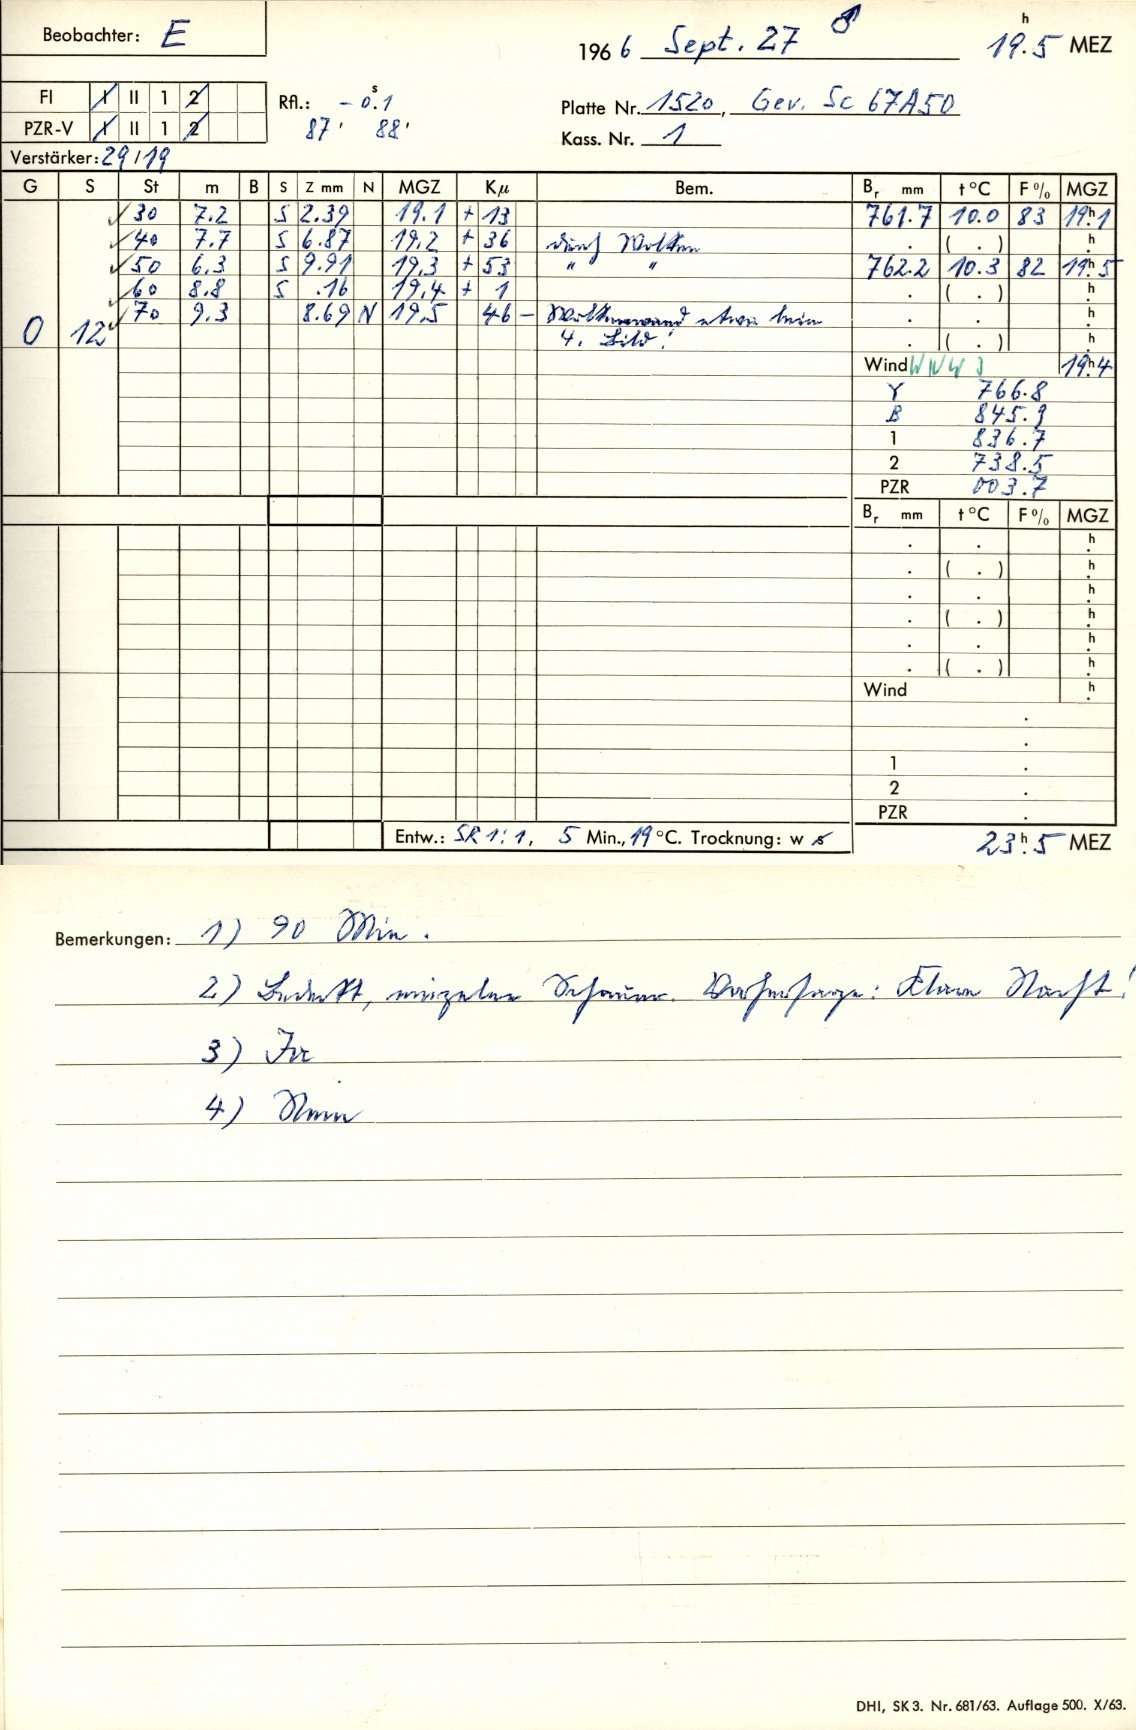 Beobachter: E
196 6 Sept. 27 ♂ 19.5 h MEZ
FI I II 1 2
PZR-V I II 1 2
Rfl.: - 0.1 s
87' 88'
Platte Nr. 1520, Gev. Sc 67A50
Kass. Nr. 1
Verstärker: 29/19
G S St m B S Z mm N MGZ Kμ Bem. Br mm t °C F % MGZ
30 7.2 S 2.39 19.1 + 13 761.7 10.0 83 19h.1
40 7.7 S 6.87 19.2 + 36 durch Wolken . ( . ) h
50 6.3 S 9.91 19.3 + 53 " " 762.2 10.3 82 19h.5
60 8.8 S .16 19.4 + 1 . ( . ) h
0 12 70 9.3 8.69 N 19.5 46 - Wolkenwand etwa beim . . h
4. Bild! . ( . ) h
Wind WNW 3 19h.4
γ 766.8
B 845.9
1 836.7
2 738.5
PZR 003.7
Br mm t °C F % MGZ
. . h
. ( . ) h
. . h
. ( . ) h
. . h
. ( . ) h
Wind h
.
.
1 .
2 .
PZR .
Entw.: SR 1:1, 5 Min., 19 °C. Trocknung: w s
23h.5 MEZ
Bemerkungen: 1) 90 Min.
2) Bedeckt, einzelne Schauer. Vorhersage: Klare Nacht!
3) Ja
4) Nein
DHI, SK 3. Nr. 681/63. Auflage 500. X/63.